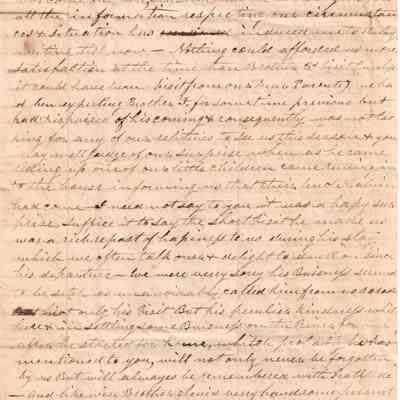 all the information respecting our circumstan
ces & Situation has induced me to delay
writing till now — Nothing could afforded us more
Satisfaction at the time than Brother Visit
it could have been Visit from our Dear Parents) we ha
d been expecting Brother for some time previous but
had dispaired of his coming & consequently was not loo
king for any of our relitives to See us this season & you
may well judge of our Surprise when as he came
riding up one of our little Children came running in
to the house informing us that their uncle
had come — I need not say to you it was a hapy Sur
prise Suffice it to say the Short visit he made us
was a rich repast of hapiness to us during his stay
which we often talk over & delight to dwell on since
his departure — we were verry sorry his Buisness seemd
to be such as unavoidably called him from us so soon
not only his Visit But his peculier kindness whil
here & in Settling some Buisness on the River for
after he started for home, which he has
mentioned to you, will not only never be forgotten
by us But will always be remembered with Gratitude
— And likewise Brother very handsome present